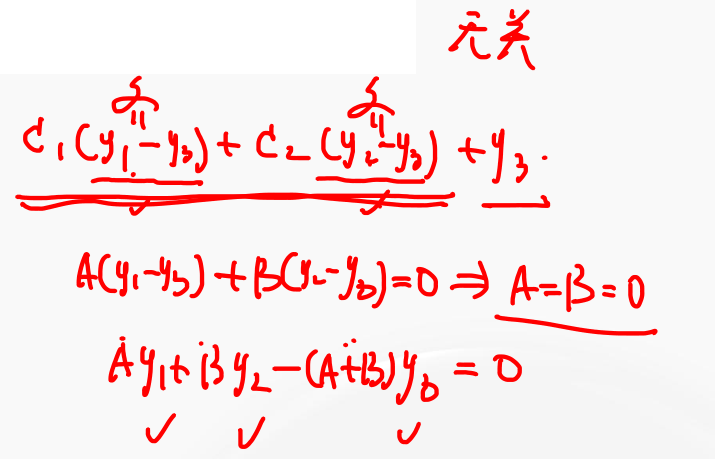 无关
齐 齐
C₁(y₁-y₃)+C₂(y₂-y₃)+y₃.
A(y₁-y₃)+B(y₂-y₃)=0⇒A=B=0
Ay₁+By₂-(A+B)y₃=0